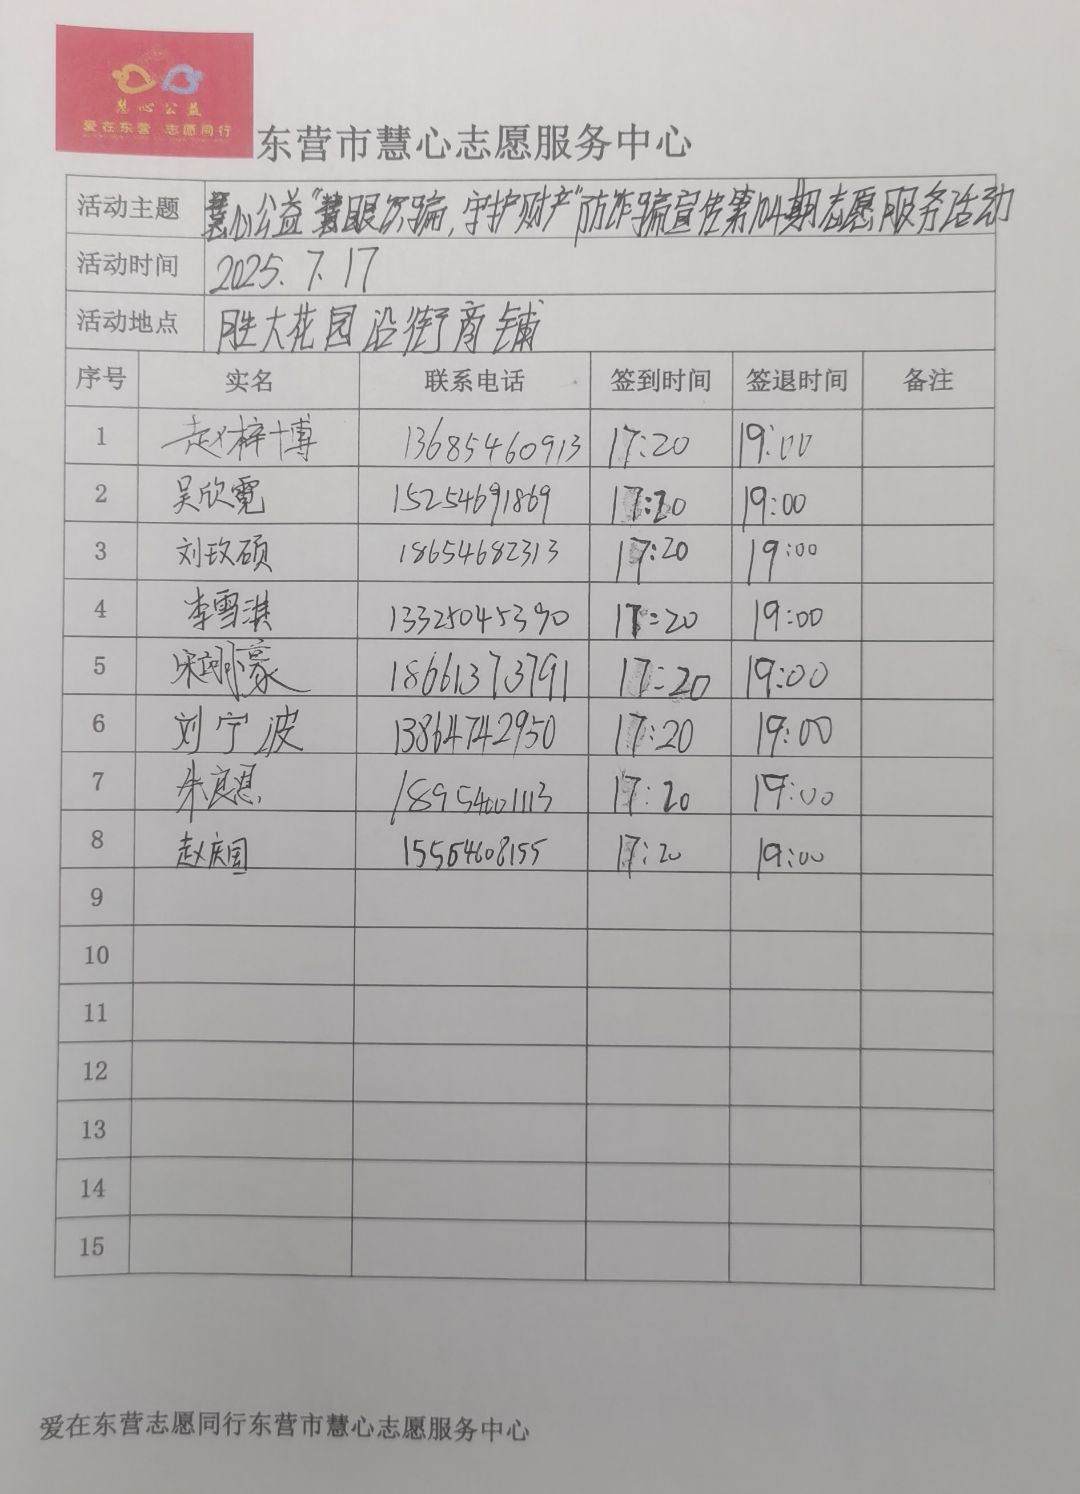 慧心公益
爱在东营 志愿同行
东营市慧心志愿服务中心
活动主题 慧心公益"慧眼识骗,守护财产"防诈骗宣传第104期志愿服务活动
活动时间 2025.7.17
活动地点 胜大花园沿街商铺
序号 实名 联系电话 签到时间 签退时间 备注
1 赵梓博 13685460913 17:20 19:00
2 吴欣霓 15254691869 17:20 19:00
3 刘玟硕 18654682313 17:20 19:00
4 李雪淇 13325045390 17:20 19:00
5 宋翊豪 18661373791 17:20 19:00
6 刘宁波 13864742950 17:20 19:00
7 朱良恩 18954601113 17:20 19:00
8 赵庆国 15564608155 17:20 19:00
9
10
11
12
13
14
15
爱在东营志愿同行东营市慧心志愿服务中心